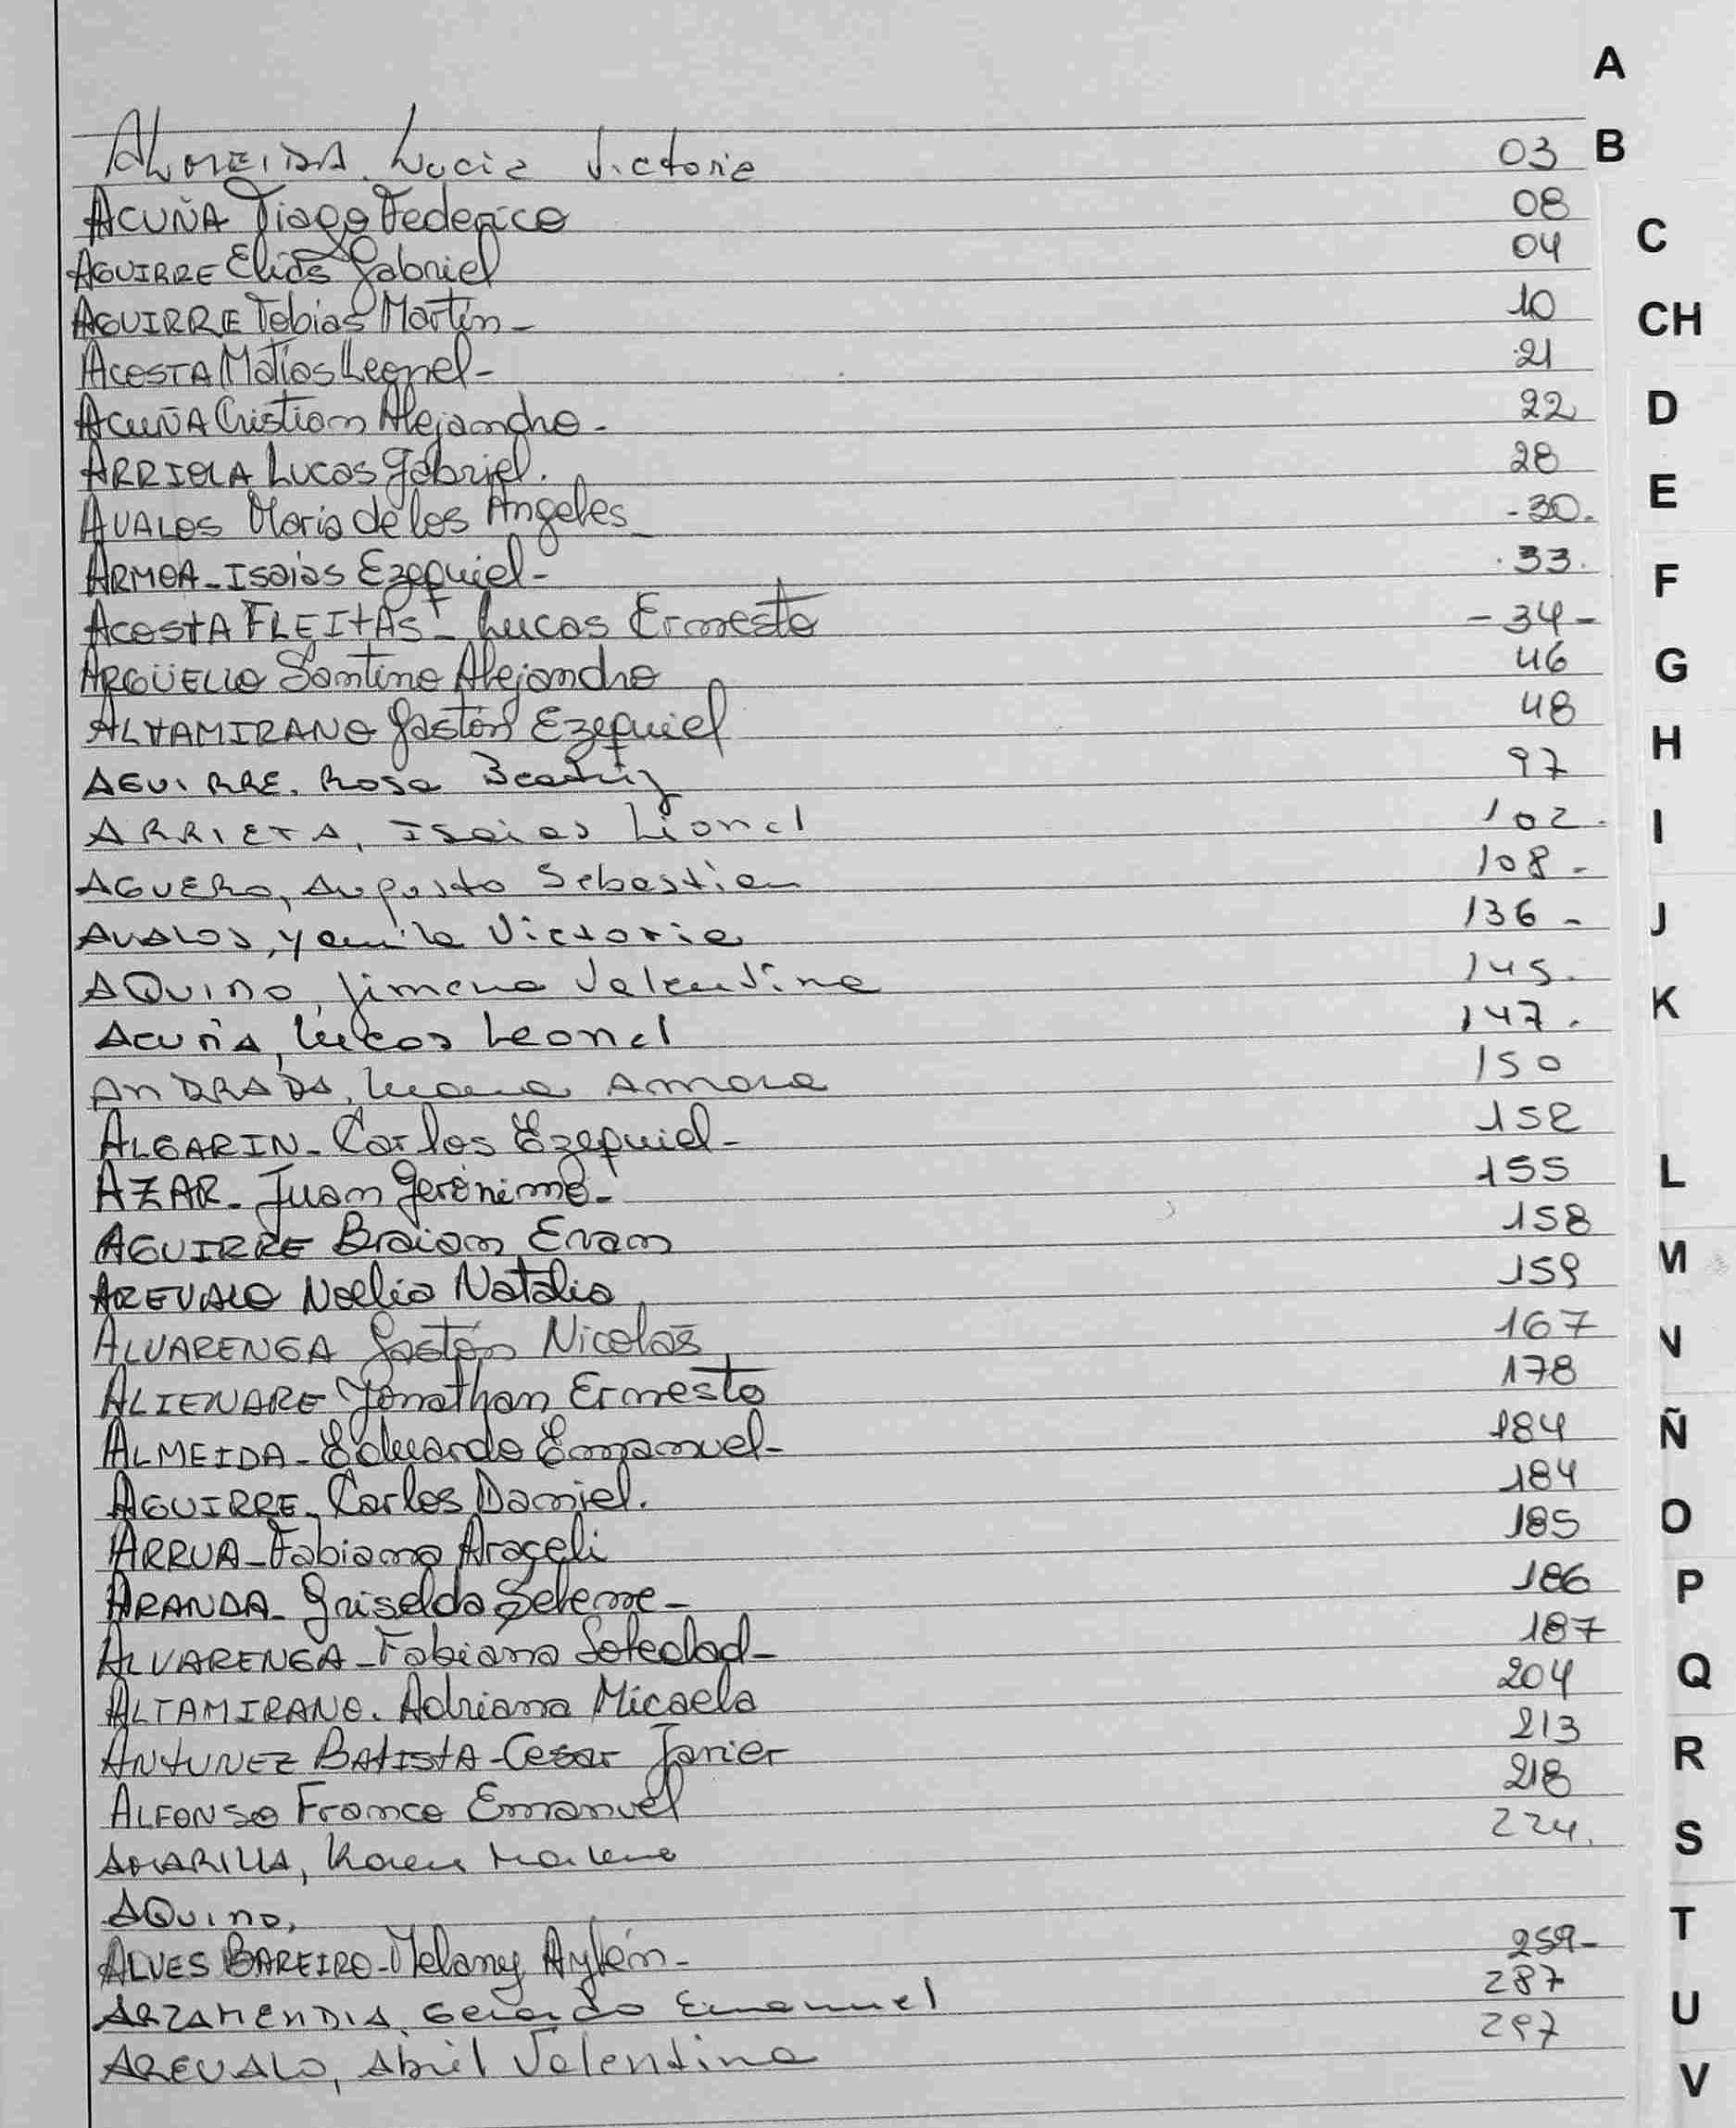 A
ALMEIDA, Lucia Victoria 03
B
ACUÑA Tiago Federico 08
C
AGUIRRE Elias Gabriel 04
AGUIRRE Tobias Martín - 10
CH
ACOSTA Matías Leonel - 21
ACUÑA Cristian Alejandro - 22
D
ARRIOLA Lucas Gabriel. 28
E
AVALOS María de los Angeles - 30.
ARMOA - Isaias Ezequiel - 33.
F
ACOSTA FLEITAS - Lucas Ernesto - 34 -
G
ARGÜELLO Santino Alejandro 46
ALTAMIRANO Gastón Ezequiel 48
H
AGUIRRE. Rosa Beatriz 97
ARRIETA, Isaias Lionel 102.
I
AGUERO, Augusto Sebastian 108 -
AVALOS, Yamila Victoria 136 -
J
AQUINO, Jimena Valentina 145.
K
ACUÑA, Lucas Leonel 147.
ANDRADA, Luana Amora 150
ALGARIN - Carlos Ezequiel - 152
AZAR - Juan Gerónimo - 155
L
AGUIRRE Braian Evan 158
M
AREVALO Noelia Natalia 159
ALVARENGA Gastón Nicolás 167
N
ALIENARE Jonathan Ernesto 178
ALMEIDA - Eduardo Emmanuel - 184
Ñ
AGUIRRE - Carlos Daniel. 184
ARRUA - Fabiana Araceli 185
O
ARANDA - Griselda Selene - 186
P
ALVARENGA - Fabiana Soledad - 187
Q
ALTAMIRANO. Adriana Micaela 204
ANTUNEZ BATISTA - Cesar Javier 213
R
ALFONSO Franco Emanuel 218
AMARILLA, Karen Marlene 224.
S
AQUINO,
T
ALVES BAREIRO - Melany Aylén - 259 -
ARZAMENDIA, Gerardo Emanuel 287
U
AREVALO, Abril Valentina 297
V